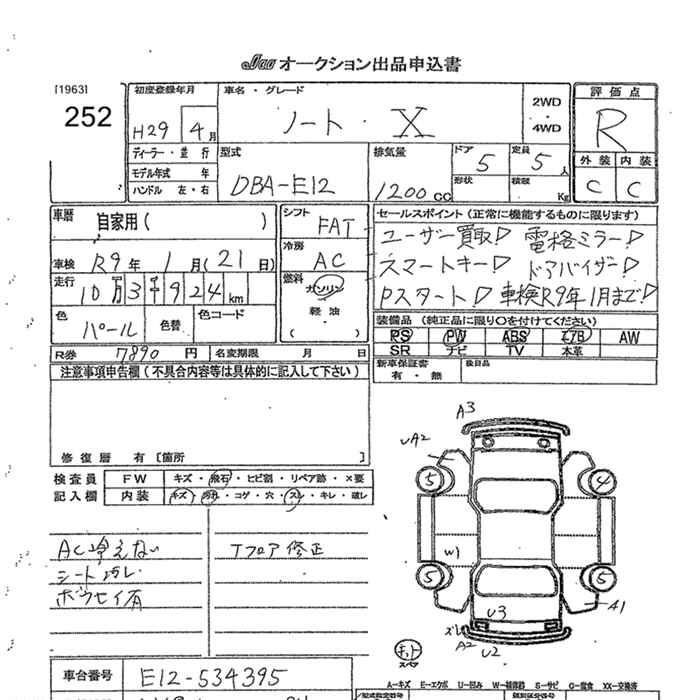 Jau オークション出品申込書
[1963]
252
初度登録年月
H29 4月
車名・グレード
ノート・X
2WD
・
4WD
評価点
R
ディーラー・並行
モデル年式 年
ハンドル 左・右
型式
DBA-E12
排気量
1200cc
ドア
5
定員
5人
形状
積載
Kg
外装 内装
C C
車歴
自家用( )
シフト
FAT
セールスポイント(正常に機能するものに限ります)
ユーザー買取! 電格ミラー!
スマートキー! ドアバイザー!
Pスタート! 車検R9年1月まで!
車検 R9年 1月(21日)
冷房
AC
走行
10万3千924km
燃料
ガソリン
軽油
( )
色
パール
色替
色コード
装備品(純正品に限り○を付けてください)
PS PW ABS エアB AW
SR ナビ TV 本革
R券 7890円
名変期限 月 日
新車保証書
有・無
後日品
注意事項申告欄(不具合内容等は具体的に記入して下さい)
修復歴 有[箇所 ]
検査員
記入欄
FW キズ・飛石・ヒビ割・リペア跡・×要
内装 キズ・汚れ・コゲ・穴・スレ・キレ・破レ
AC冷えない
シート汚レ
ホウセイ有
Tフロア修正
A3
UA2
5
4
W1
5
5
U3
A1
ズレ
A2
U2
キット
スペア
車台番号
E12-534395
A=キズ E=エクボ U=凹み W=補修跡 S=サビ C=腐食 XX=交換済